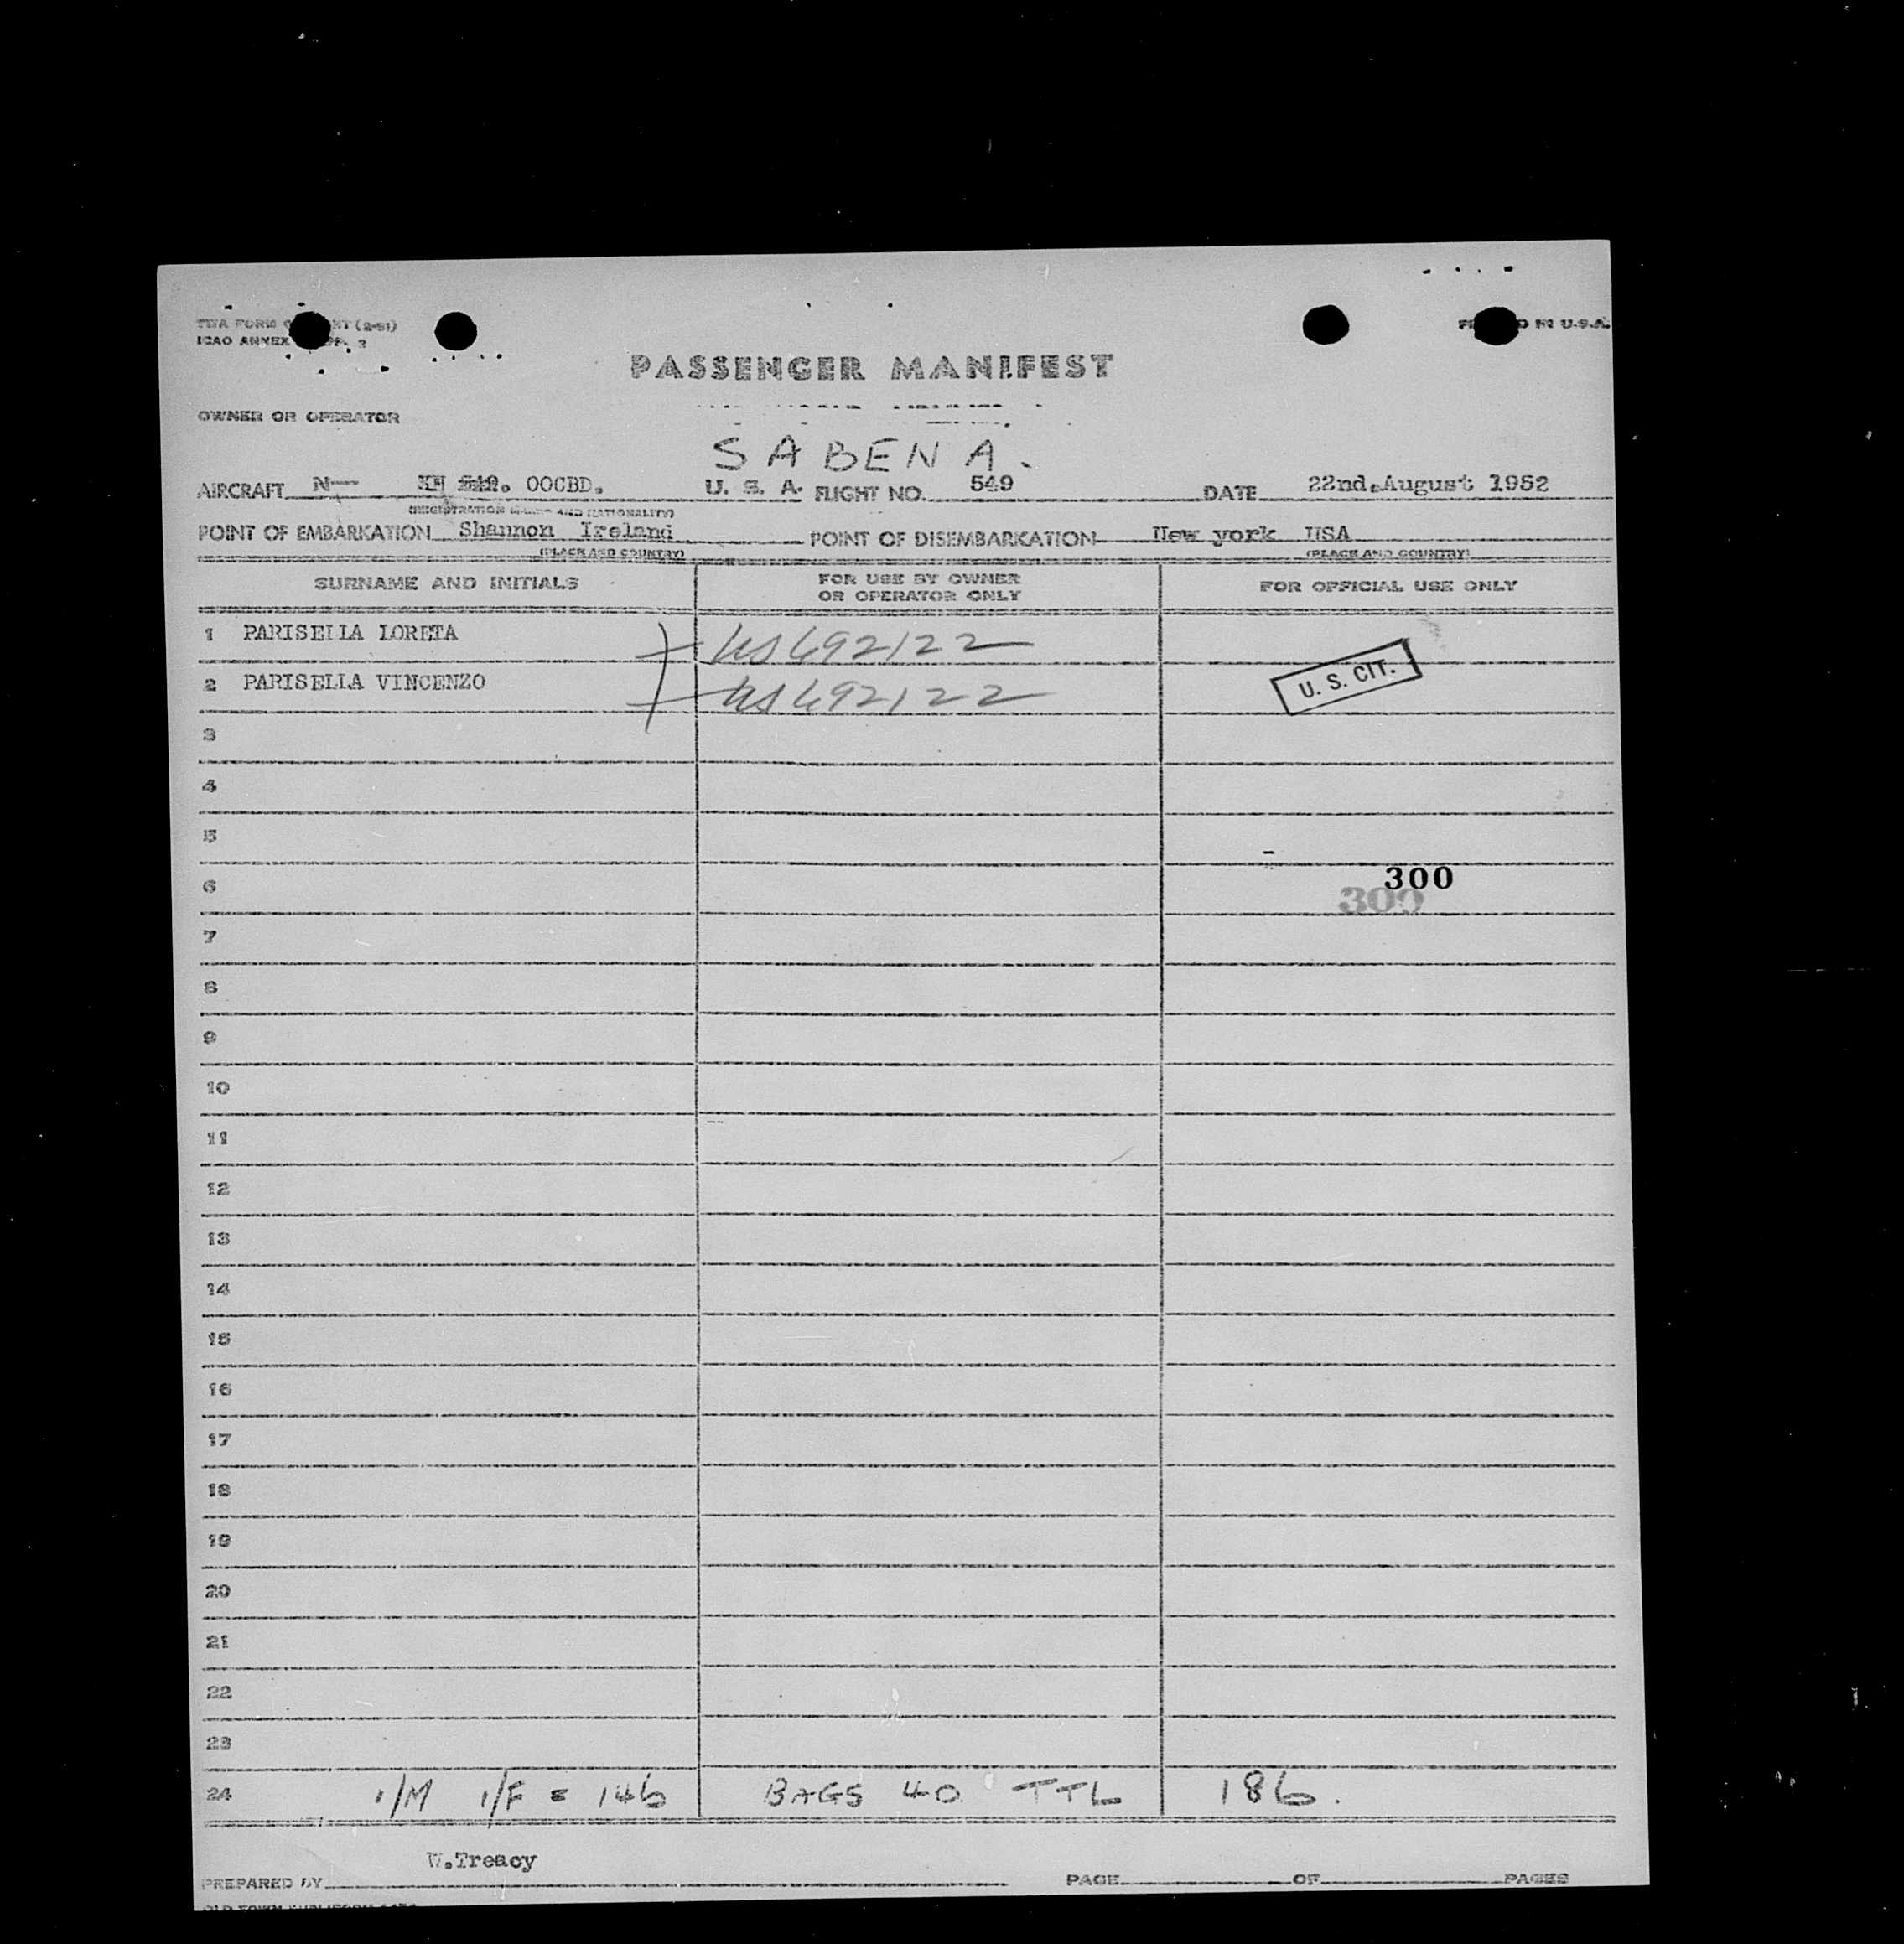 TWA FORM (2-51)
ICAO ANNEX 2
PRINTED IN U.S.A.
PASSENGER MANIFEST
OWNER OR OPERATOR
SABENA.
AIRCRAFT N— 549. OOCBD. U. S. A. FLIGHT NO. 549 DATE 22nd.August 1952
(REGISTRATION MARKS AND NATIONALITY)
POINT OF EMBARKATION Shannon Ireland POINT OF DISEMBARKATION New york USA
(PLACE AND COUNTRY) (PLACE AND COUNTRY)
SURNAME AND INITIALS FOR USE BY OWNER OR OPERATOR ONLY FOR OFFICIAL USE ONLY
1 PARISELLA LORETA US692122
2 PARISELLA VINCENZO US692122 U. S. CIT.
3
4
5
6 300 300
7
8
9
10
11
12
13
14
15
16
17
18
19
20
21
22
23
24 1/M 1/F = 146 BAGS 40 TTL 186.
W.Treacy
PREPARED BY PAGE OF PAGES